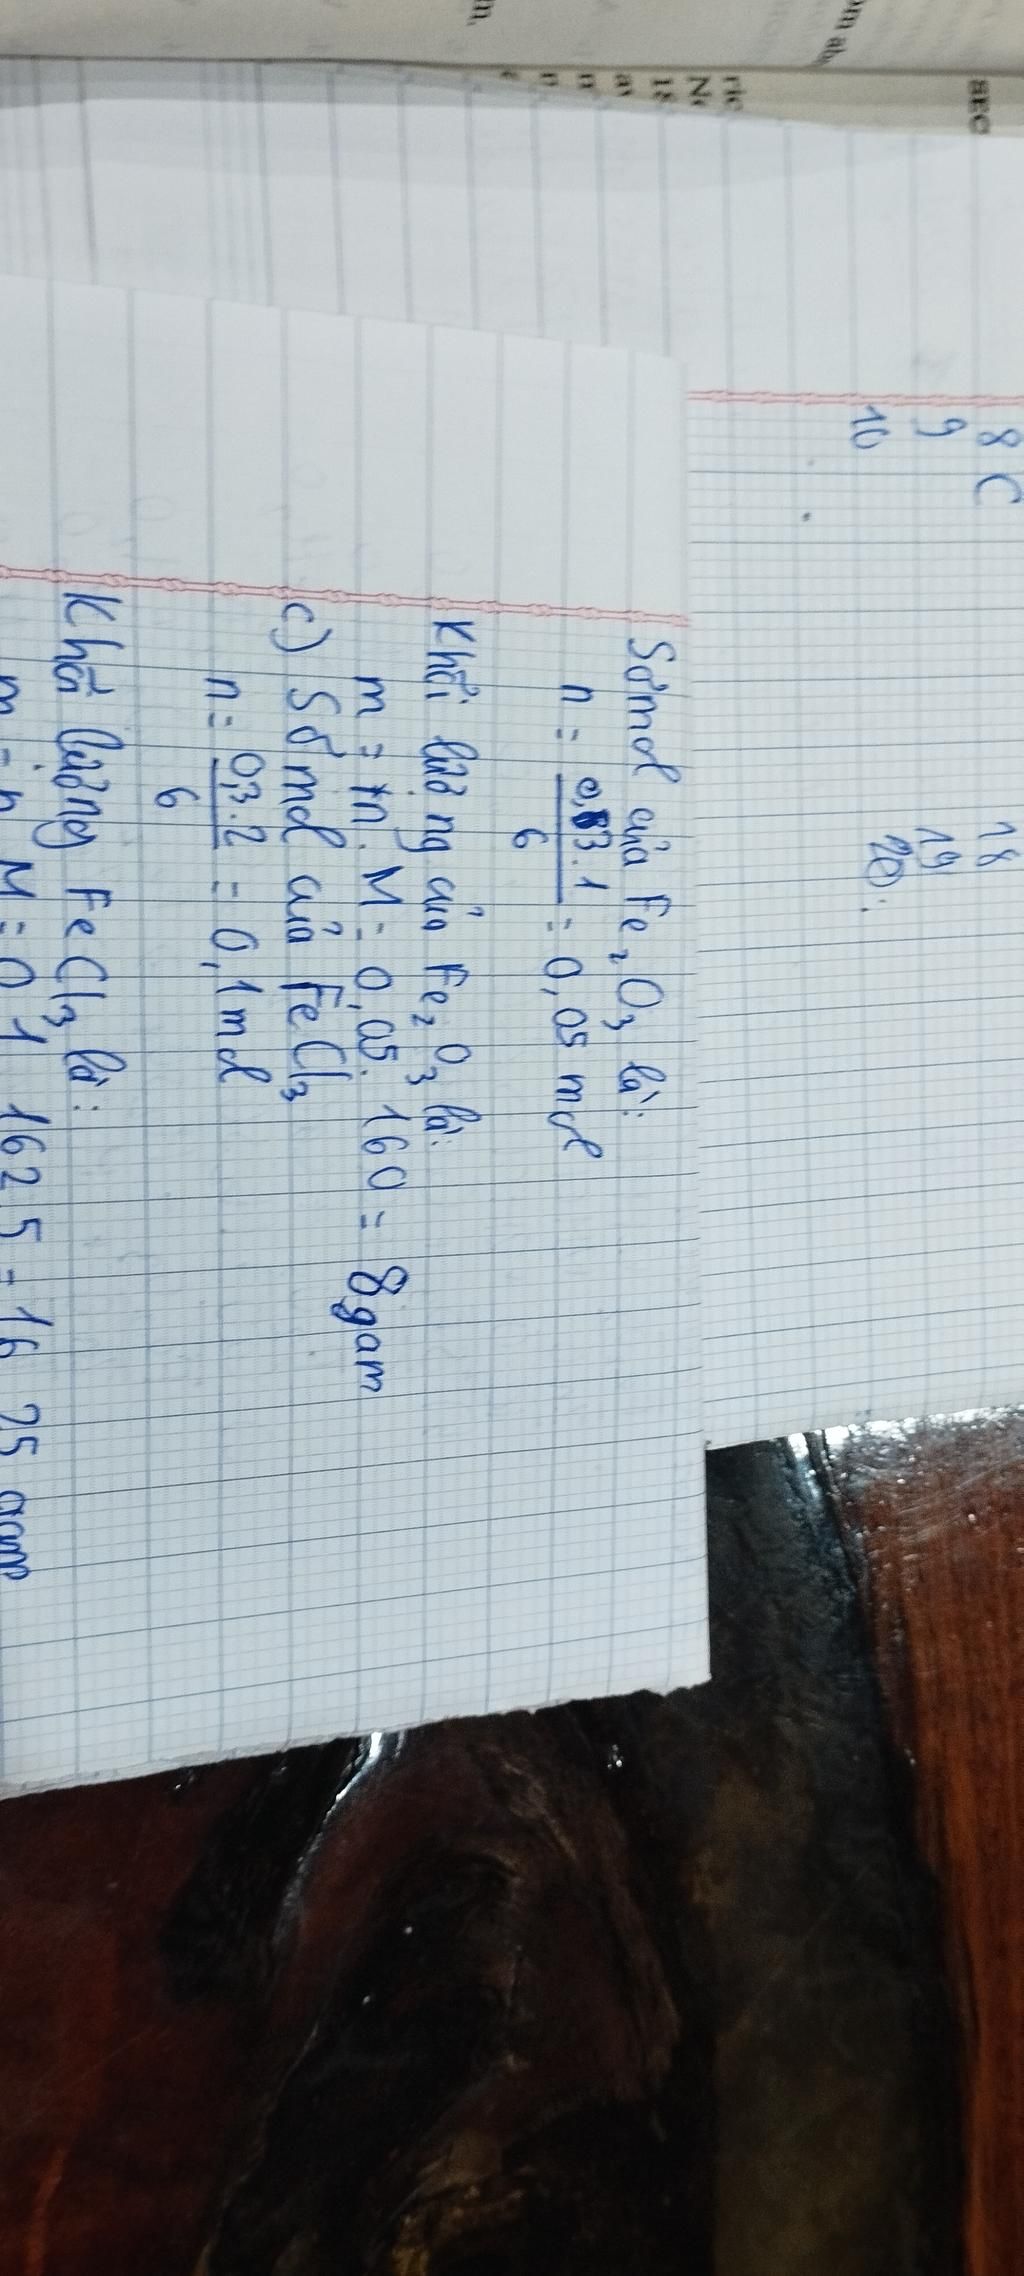 8 C
9
10
18
19
20:
Số mol của Fe₂O₃ là:
n = 0,3.1 / 6 = 0,05 mol
Khối lượng của Fe₂O₃ là:
m = n. M = 0,05. 160 = 8gam
c) Số mol của FeCl₃
n = 0,3.2 / 6 = 0,1 mol
Khối lượng FeCl₃ là:
m = n M = 0 1 162 5 = 16 25 gam